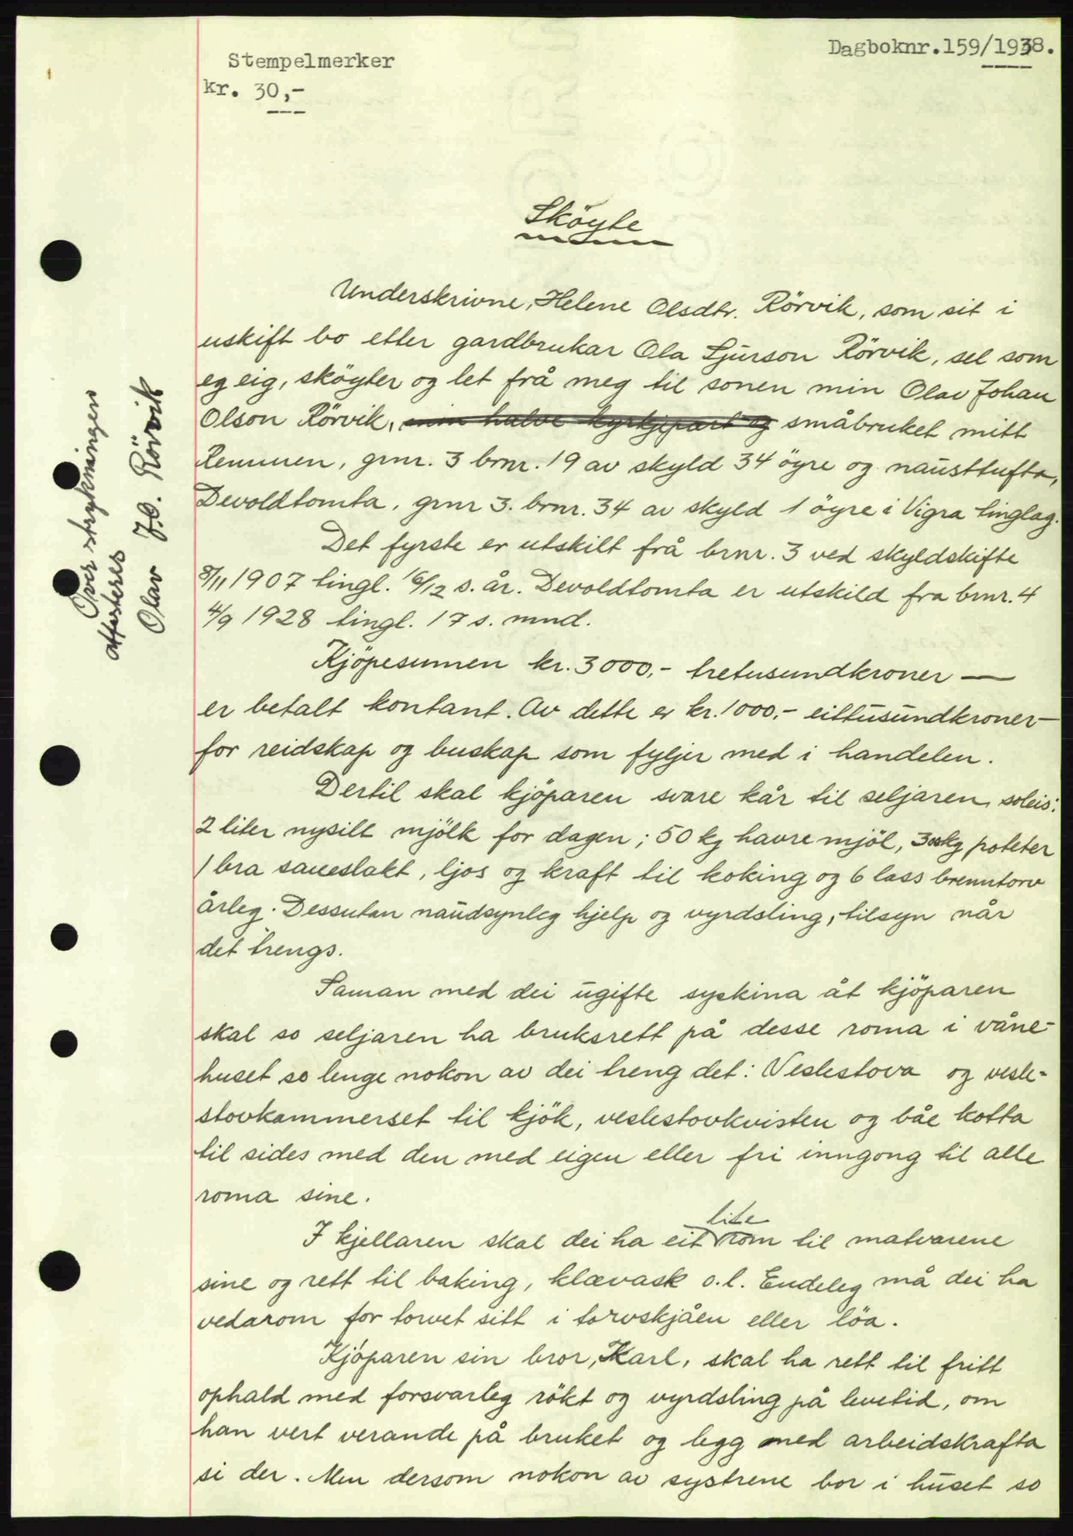 Dagboknr.159/1938.
Stempelmerker
kr. 30,-
Sköyte
Underskrivne, Helene Olsdtr. Rörvik, som sit i
uskift bo etter gardbrukar Ola Sjurson Rörvik, sel som
eg eig, sköyter og let frå meg til sonen min Olav Johan
Olson Rörvik, min halve kyrkjepart og småbruket mitt
Remmen, grnr. 3 brnr. 19 av skyld 34 öyre og nausttufta,
Devoldtomta, grnr 3. brnr. 34 av skyld 1 öyre i Vigra tinglag.
Det fyrste er utskilt frå brnr. 3 ved skyldskifte
8/11 1907 tingl. 16/12 s. år. Devoldtomta er utskild fra brnr. 4
4/9 1928 tingl. 17 s. mnd.
Kjöpesummen kr. 3000,- tretusundkroner —
er betalt kontant. Av dette er kr. 1000,- eittusundkroner —
for reidskap og buskap som fylgjer med i handelen.
Dertil skal kjöparen svare kår til seljaren, soleis:
2 liter nysilt mjölk for dagen; 50 kg havremjöl, 300kg poteter
1 bra saueslakt, ljos og kraft til koking og 6 lass brenntorv
årleg. Dessutan naudsynleg hjelp og vyrdsling, tilsyn når
det trengs.
Saman med dei ugifte syskina åt kjöparen
skal so seljaren ha bruksrett på desse roma i våne-
huset so lenge nokon av dei treng det: Veslestova og vesle-
stovkammerset til kjök, veslestovkvisten og båe kotta
til sides med den med eigen eller fri inngong til alle
roma sine.
I kjellaren skal dei ha eit lite rom til matvarene
sine og rett til baking, klævask o.l. Endeleg må dei ha
vedarom for torvet sitt i torvskjåen eller löa.
Kjöparen sin bror, Karl, skal ha rett til fritt
ophald med forsvarleg rökt og vyrdsling på levetid, om
han vert verande på bruket og legg med arbeidskrafta
si der. Men dersom nokon av systrene bor i huset so
Over strykningen
attesteres
Olav J.O. Rörvik